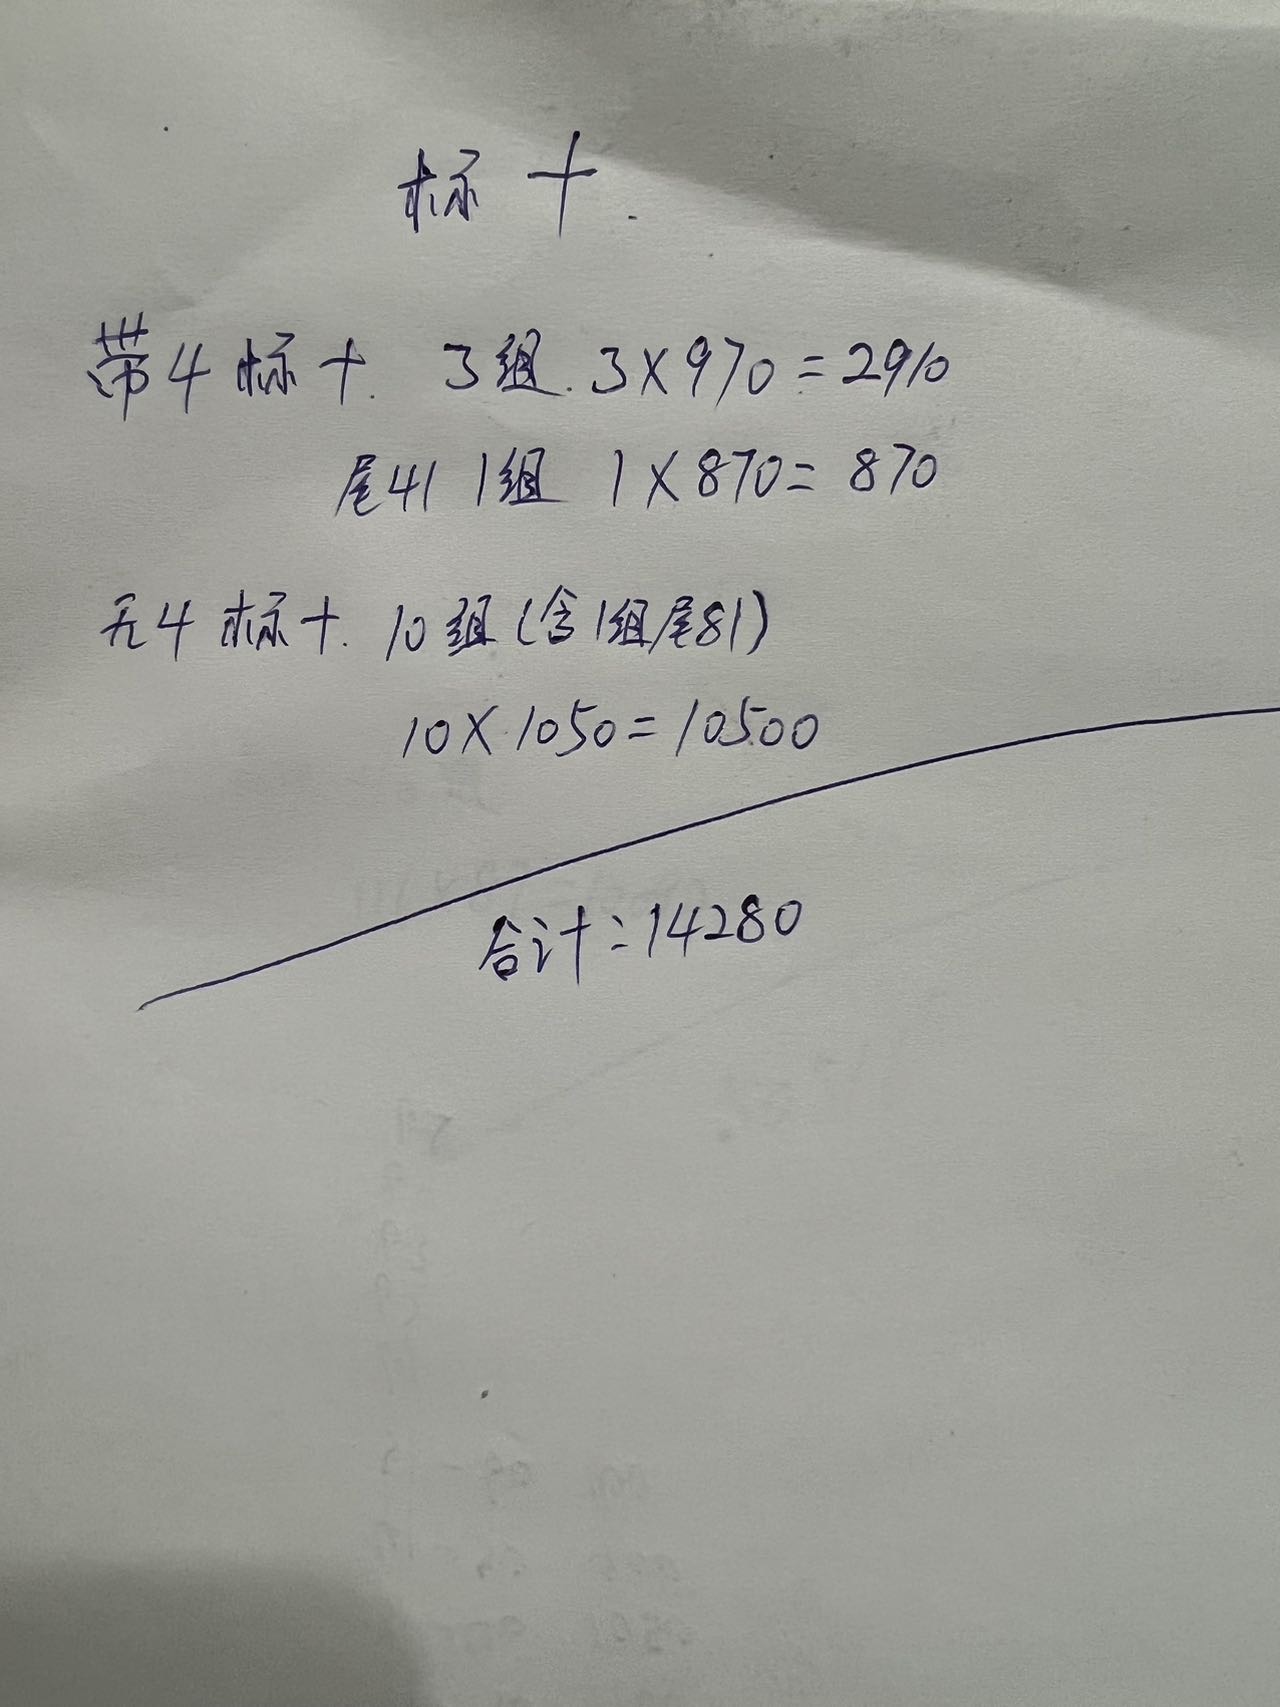 标十.
带4标十. 3组. 3×970=2910
尾41 1组 1×870=870
无4标十. 10组(含1组尾81)
10×1050=10500
合计:14280